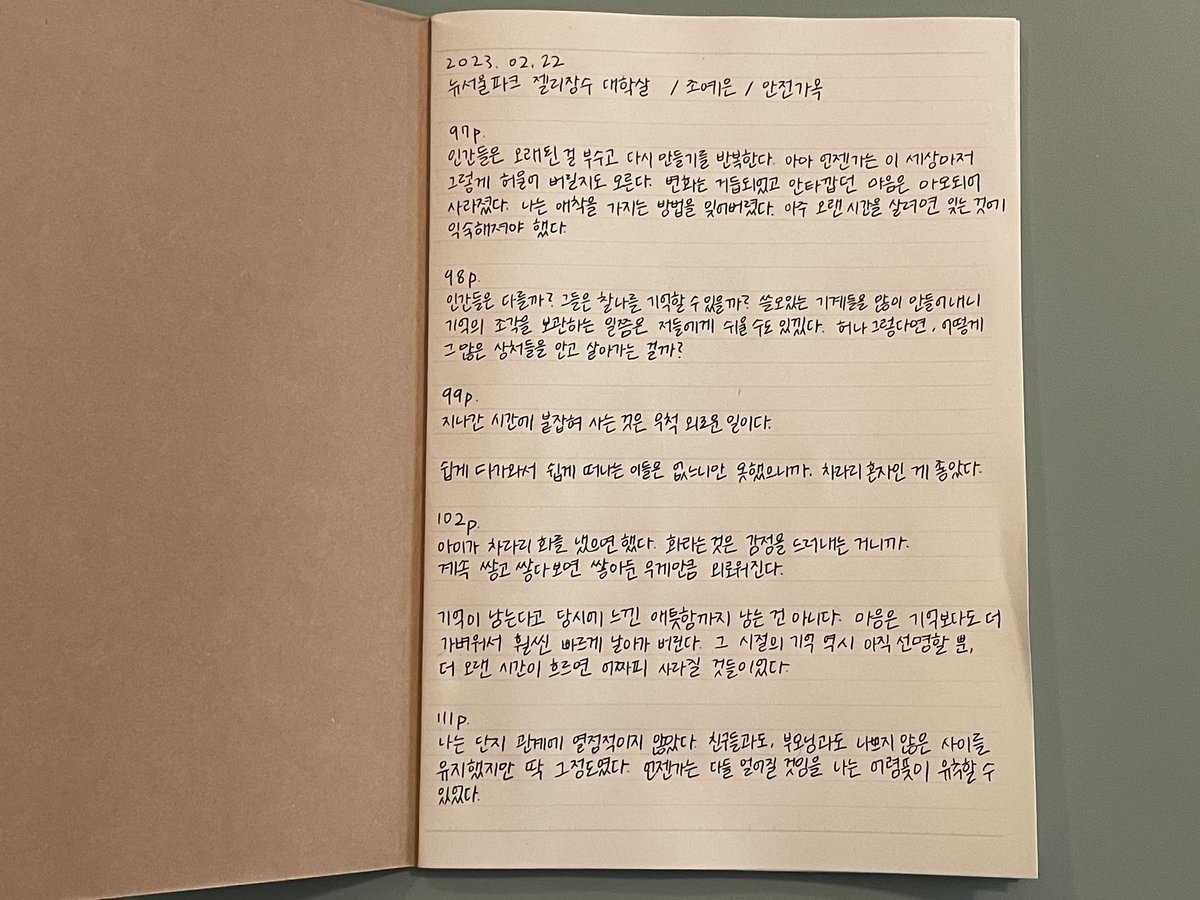 2023. 02. 22
뉴서울파크 젤리장수 대학살 / 조예은 / 안전가옥
97p.
인간들은 오래된 걸 부수고 다시 만들기를 반복한다. 아마 언젠가는 이 세상마저
그렇게 허물어 버릴지도 모른다. 변화는 거듭되었고 안타깝던 마음은 마모되어
사라졌다. 나는 애착을 가지는 방법을 잊어버렸다. 아주 오랜 시간을 살려면 잊는 것에
익숙해져야 했다.
98p.
인간들은 다를까? 그들은 찰나를 기억할 수 있을까? 쓸모있는 기계들을 많이 만들어내니
기억의 조각을 보관하는 일쯤은 저들에게 쉬울 수도 있겠다. 허나 그렇다면, 어떻게
그 많은 상처들을 안고 살아가는 걸까?
99p.
지나간 시간에 붙잡혀 사는 것은 무척 외로운 일이다.
쉽게 다가와서 쉽게 떠나는 이들은 없느니만 못했으니까. 차라리 혼자인 게 좋았다.
102p.
아이가 차라리 화를 냈으면 했다. 화라는 것은 감정을 드러내는 거니까.
계속 쌓고 쌓다보면 쌓아둔 무게만큼 외로워진다.
기억이 남는다고 당시에 느낀 애틋함까지 남는 건 아니다. 마음은 기억보다도 더
가벼워서 훨씬 빠르게 날아가 버린다. 그 시절의 기억 역시 아직 선명할 뿐,
더 오랜 시간이 흐르면 어짜피 사라질 것들이었다.
111p.
나는 단지 관계에 열정적이지 않았다. 친구들과도, 부모님과도 나쁘지 않은 사이를
유지했지만 딱 그정도였다. 언젠가는 다들 멀어질 것임을 나는 어렴풋이 유추할 수
있었다.